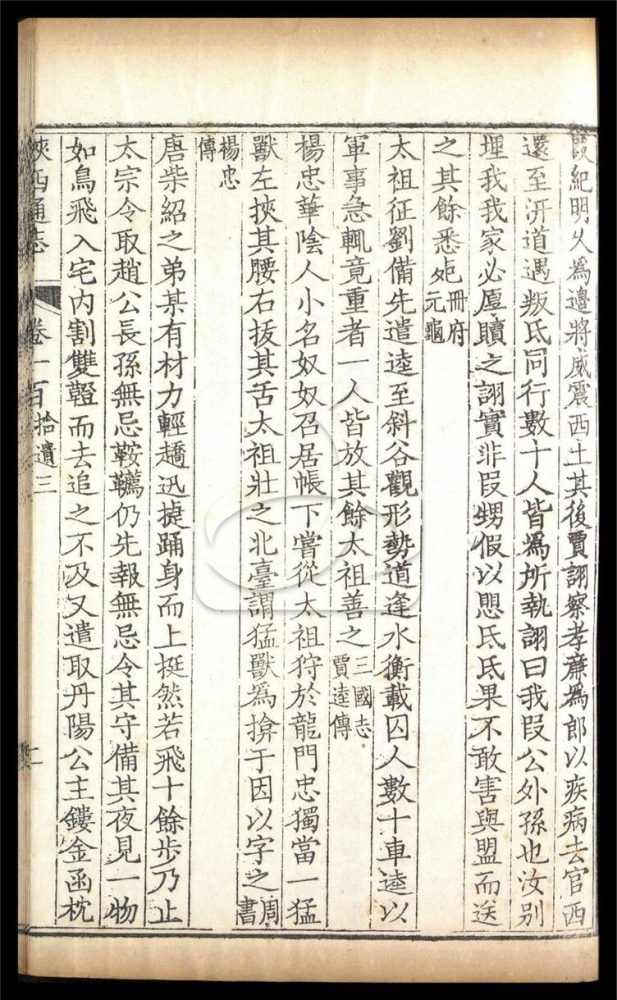 段紀明久爲邊將威震西土其後賈詡察孝廉爲郎以疾病去官西
還至汧道遇叛氐同行數十人皆爲所執詡曰我叚公外孫也汝別
埋我我家必厚贖之詡實非叚甥假以愳氐氐果不敢害與盟而送
之其餘悉死冊府元龜
太祖征劉備先遣逵至斜谷觀形勢道逢水衡載囚人數十車逵以
軍事急輒竟重者一人皆放其餘太祖善之三國志賈逵傳
楊忠華陰人小名奴奴召居帳下嘗從太祖狩於龍門忠獨當一猛
獸左挾其腰右拔其舌太祖壯之北臺謂猛獸爲揜于因以字之周書
楊忠傳
唐柴紹之弟某有材力輕趫迅捷踊身而上挺然若飛十餘步乃止
太宗令取趙公長孫無忌鞍韉仍先報無忌令其守備其夜見一物
如鳥飛入宅內割雙鞳而去追之不及又遣取丹陽公主鏤金函枕
陝西通志
卷一百拾遺三
二